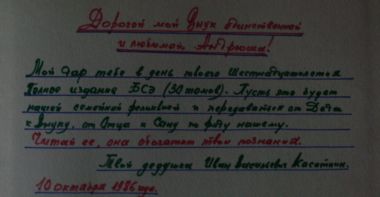 Дорогой мой Внук единственный
и любимый Андрюша!
Мой дар тебе в день твоего Шестнадцатилетия
Полное издание БСЭ (30 томов). Пусть это будет
нашей семейной реликвией и передаваться от Деда
к Внуку, от Отца к Сыну по роду нашему.
Читай её, она обогатит твои познания.
Твой дедушка Иван Васильевич Касаткин.
10 октября 1986 года.